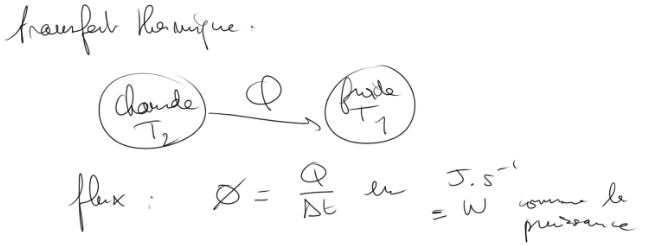 transfert thermique.
chaude T₂ Q froide T₁
flux : Ø = Q/Δt en J.s⁻¹
= W comme la puissance